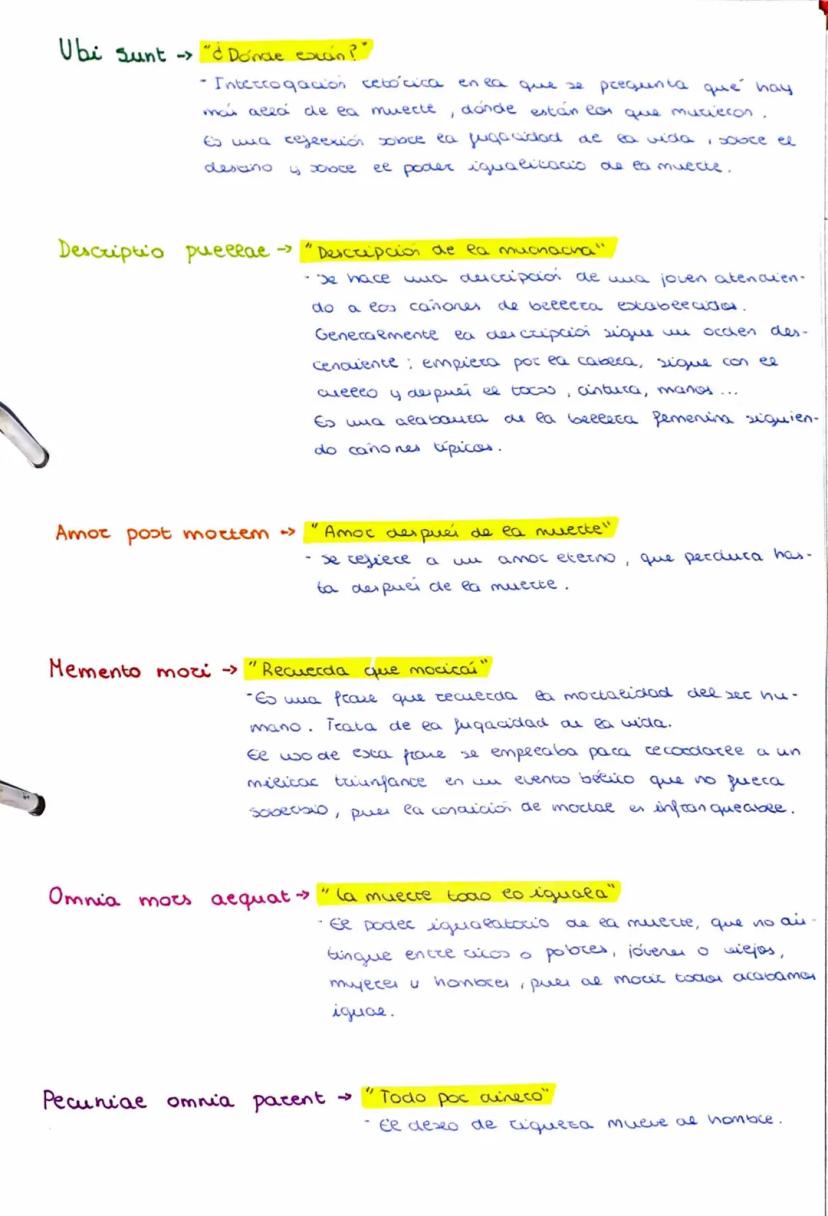 Ubi sunt → "¿Dónde están?"
- Interrogación retórica en la que se pregunta qué hay
más allá de la muerte, dónde están los que murieron.
Es una reflexión sobre la fugacidad de la vida, sobre el
destino y sobre el poder igualitario de la muerte.
Descriptio puellae → "Descripción de la muchacha"
- Se hace una descripción de una joven atendien-
do a los cañones de belleza establecidos.
Generalmente la descripción sigue un orden des-
cendiente: empieza por la cabeza, sigue con el
cuello y después el torso, cintura, manos...
Es una alabanza de la belleza femenina siguien-
do cañones típicos.
Amor post mortem → "Amor después de la muerte"
- Se refiere a un amor eterno, que perdura has-
ta después de la muerte.
Memento mori → "Recuerda que morirás"
- Es una frase que recuerda la mortalidad del ser hu-
mano. Trata de la fugacidad de la vida.
El uso de esta frase se empleaba para recordarle a un
militar triunfante en un evento bélico que no fuera
soberbio, pues la condición de mortal es infranqueable.
Omnia mors aequat → "La muerte todo lo iguala"
- El poder igualatorio de la muerte, que no dis-
tingue entre ricos o pobres, jóvenes o viejos,
mujeres u hombres, pues al morir todos acabamos
igual.
Pecuniae omnia parent → "Todo por dinero"
- El deseo de riqueza mueve al hombre.